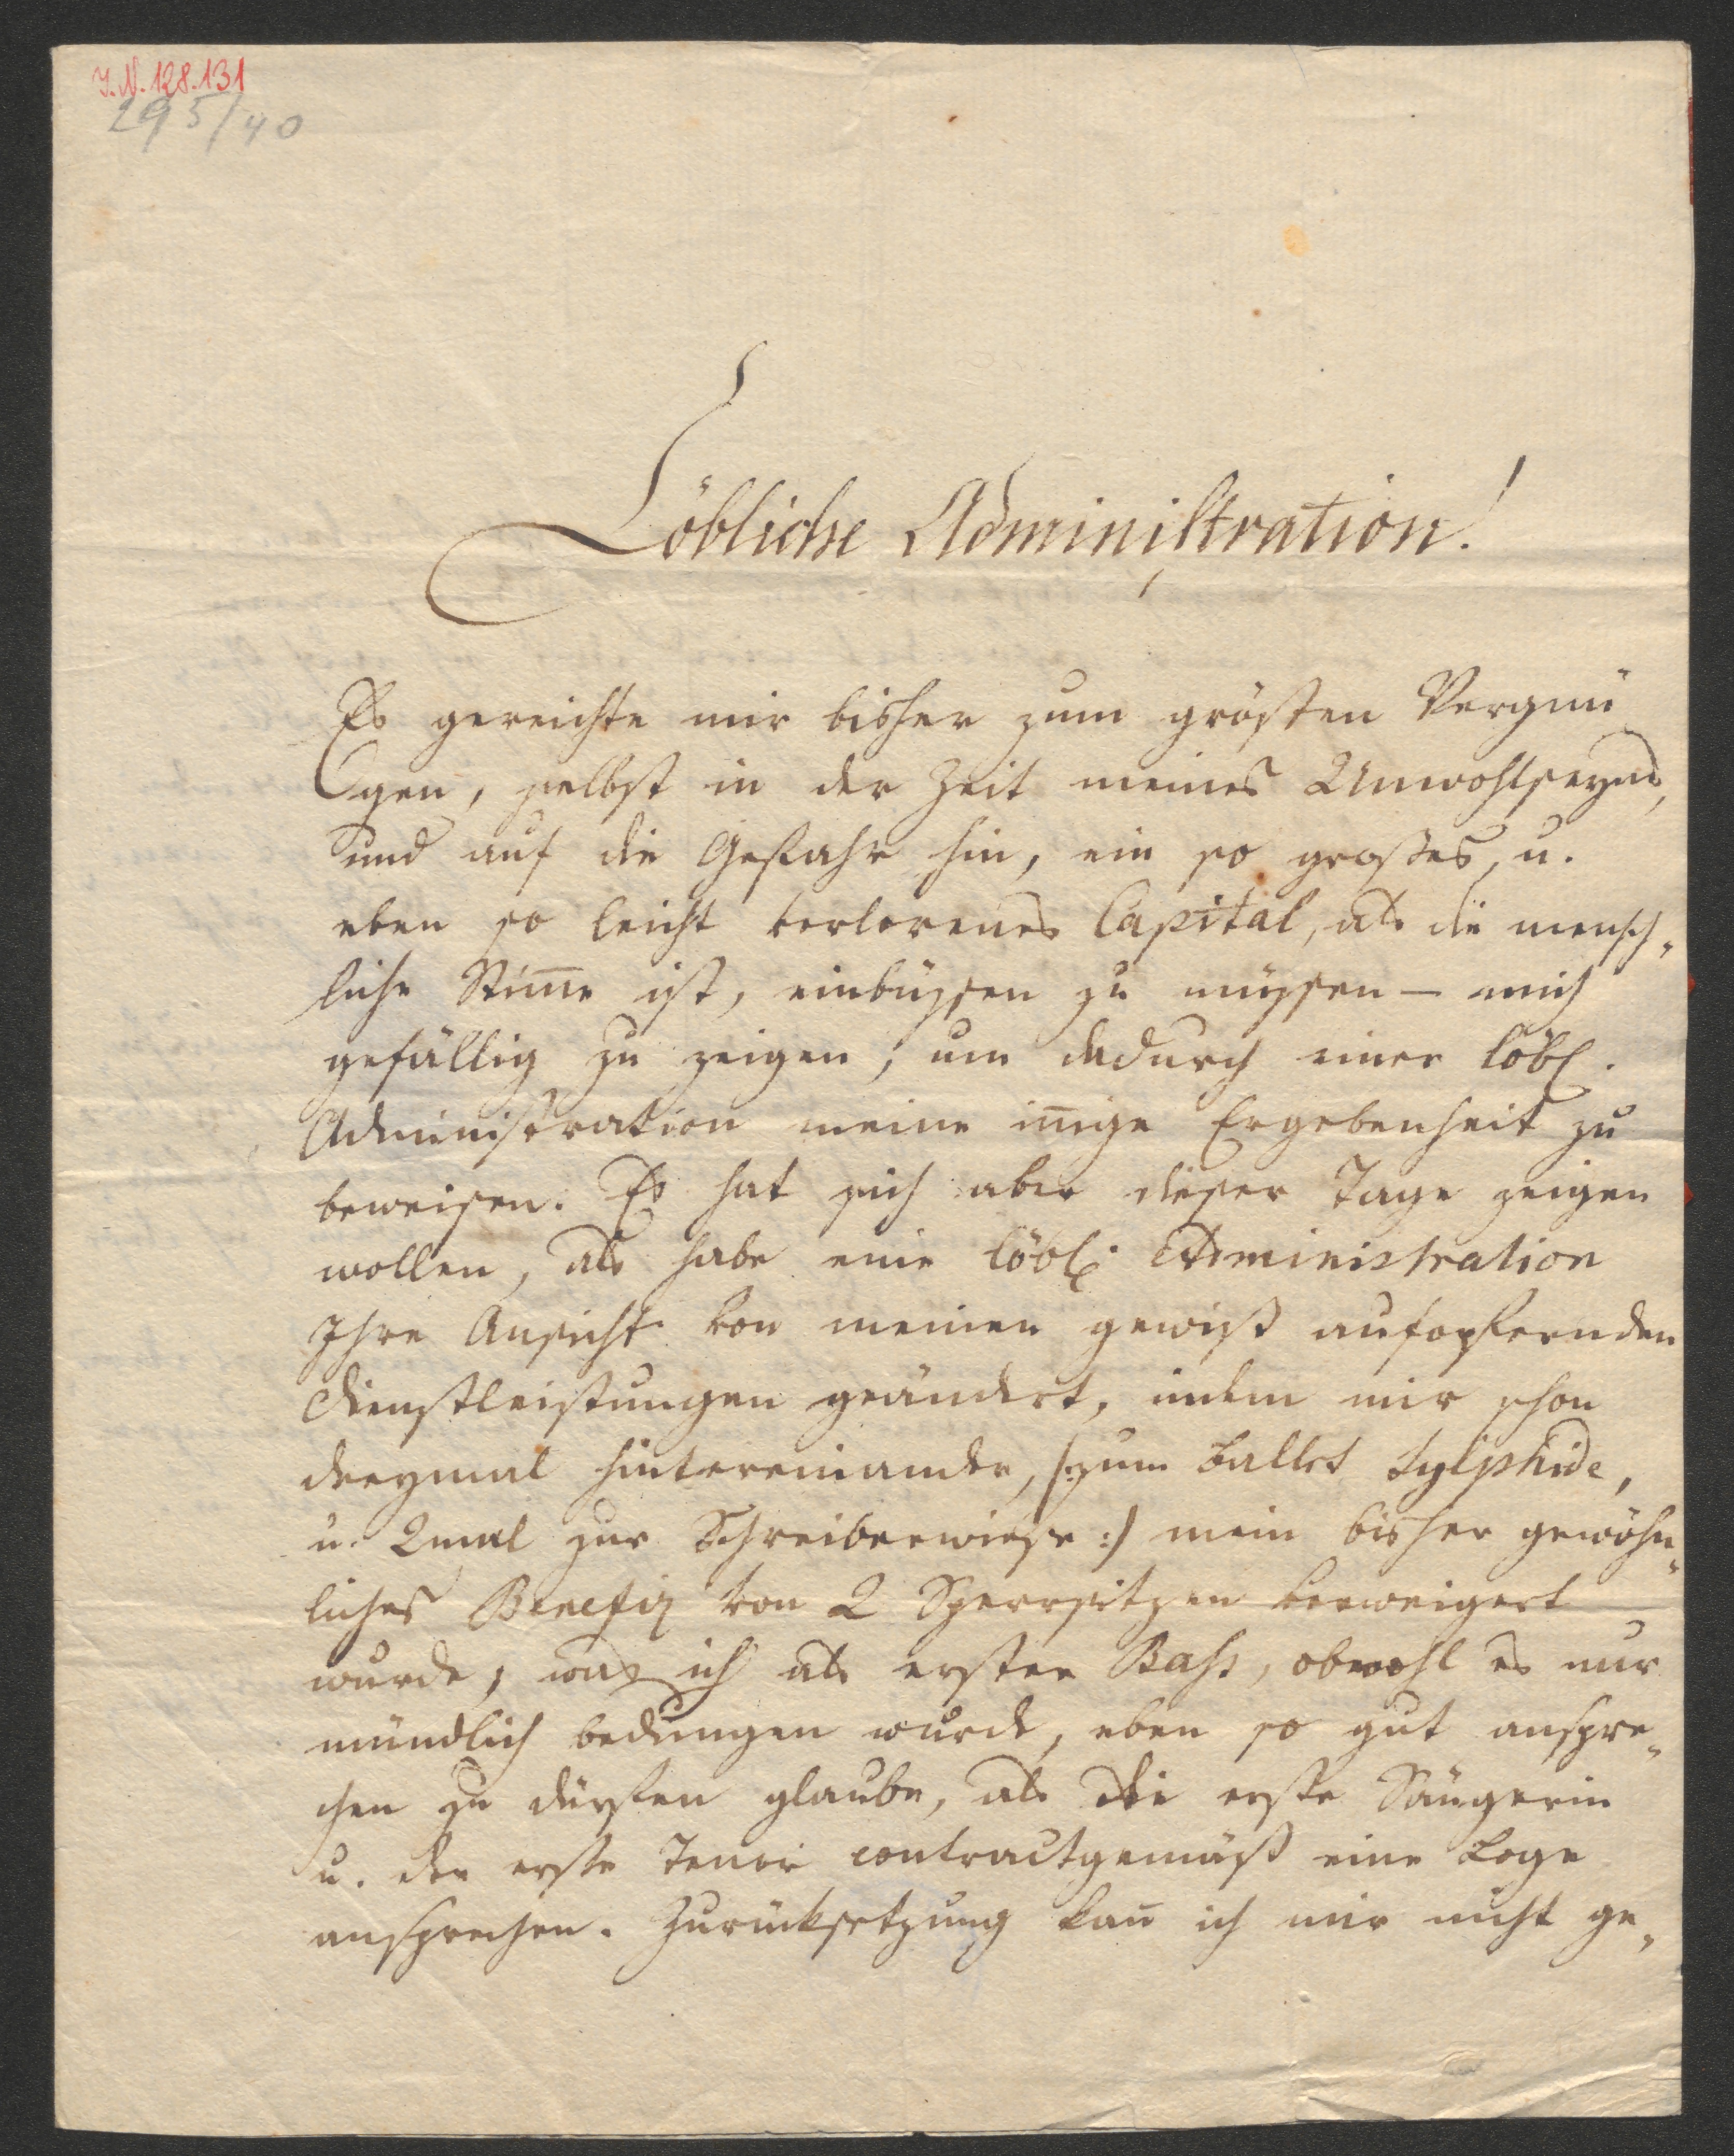 I.N. 128.131
295/40
Löbliche Administration!
Es gereichte mir bisher zum größten Vergnü
gen, selbst in der Zeit meines Unwohlseyns,
und auf die Gefahr hin, ein so großes, u.
eben so leicht verlorenes Capital, als die mensch„
liche Stim̅e ist, einbüßen zu müßen — mich
gefällig zu zeigen, um dadurch einer löbl.
Administration meine in̅ige Ergebenheit zu
beweisen. Es hat sich aber dieser Tage zeigen
wollen, als habe eine löbl. Administration
Ihre Ansicht von meinen gewiß aufopfernden
Dienstleistungen geändert, indem mir schon
dreymal hintereinander, /:zum Ballet Sylphide,
u. 2mal zur Schreiberwiese:/ mein bisher gewöhn„
liches Benefiz von 2 Sperrsitzen verweigert
wurde, was ich als erster Bass, obwohl es nur
mündlich bedungen wurde, eben so gut anspre„
chen zu dürfen glaube, als die erste Sängerin
u. der erste Tenor contractgemäß eine Loge
ansprechen. Zurücksetzung kan̅ ich mir nicht ge„